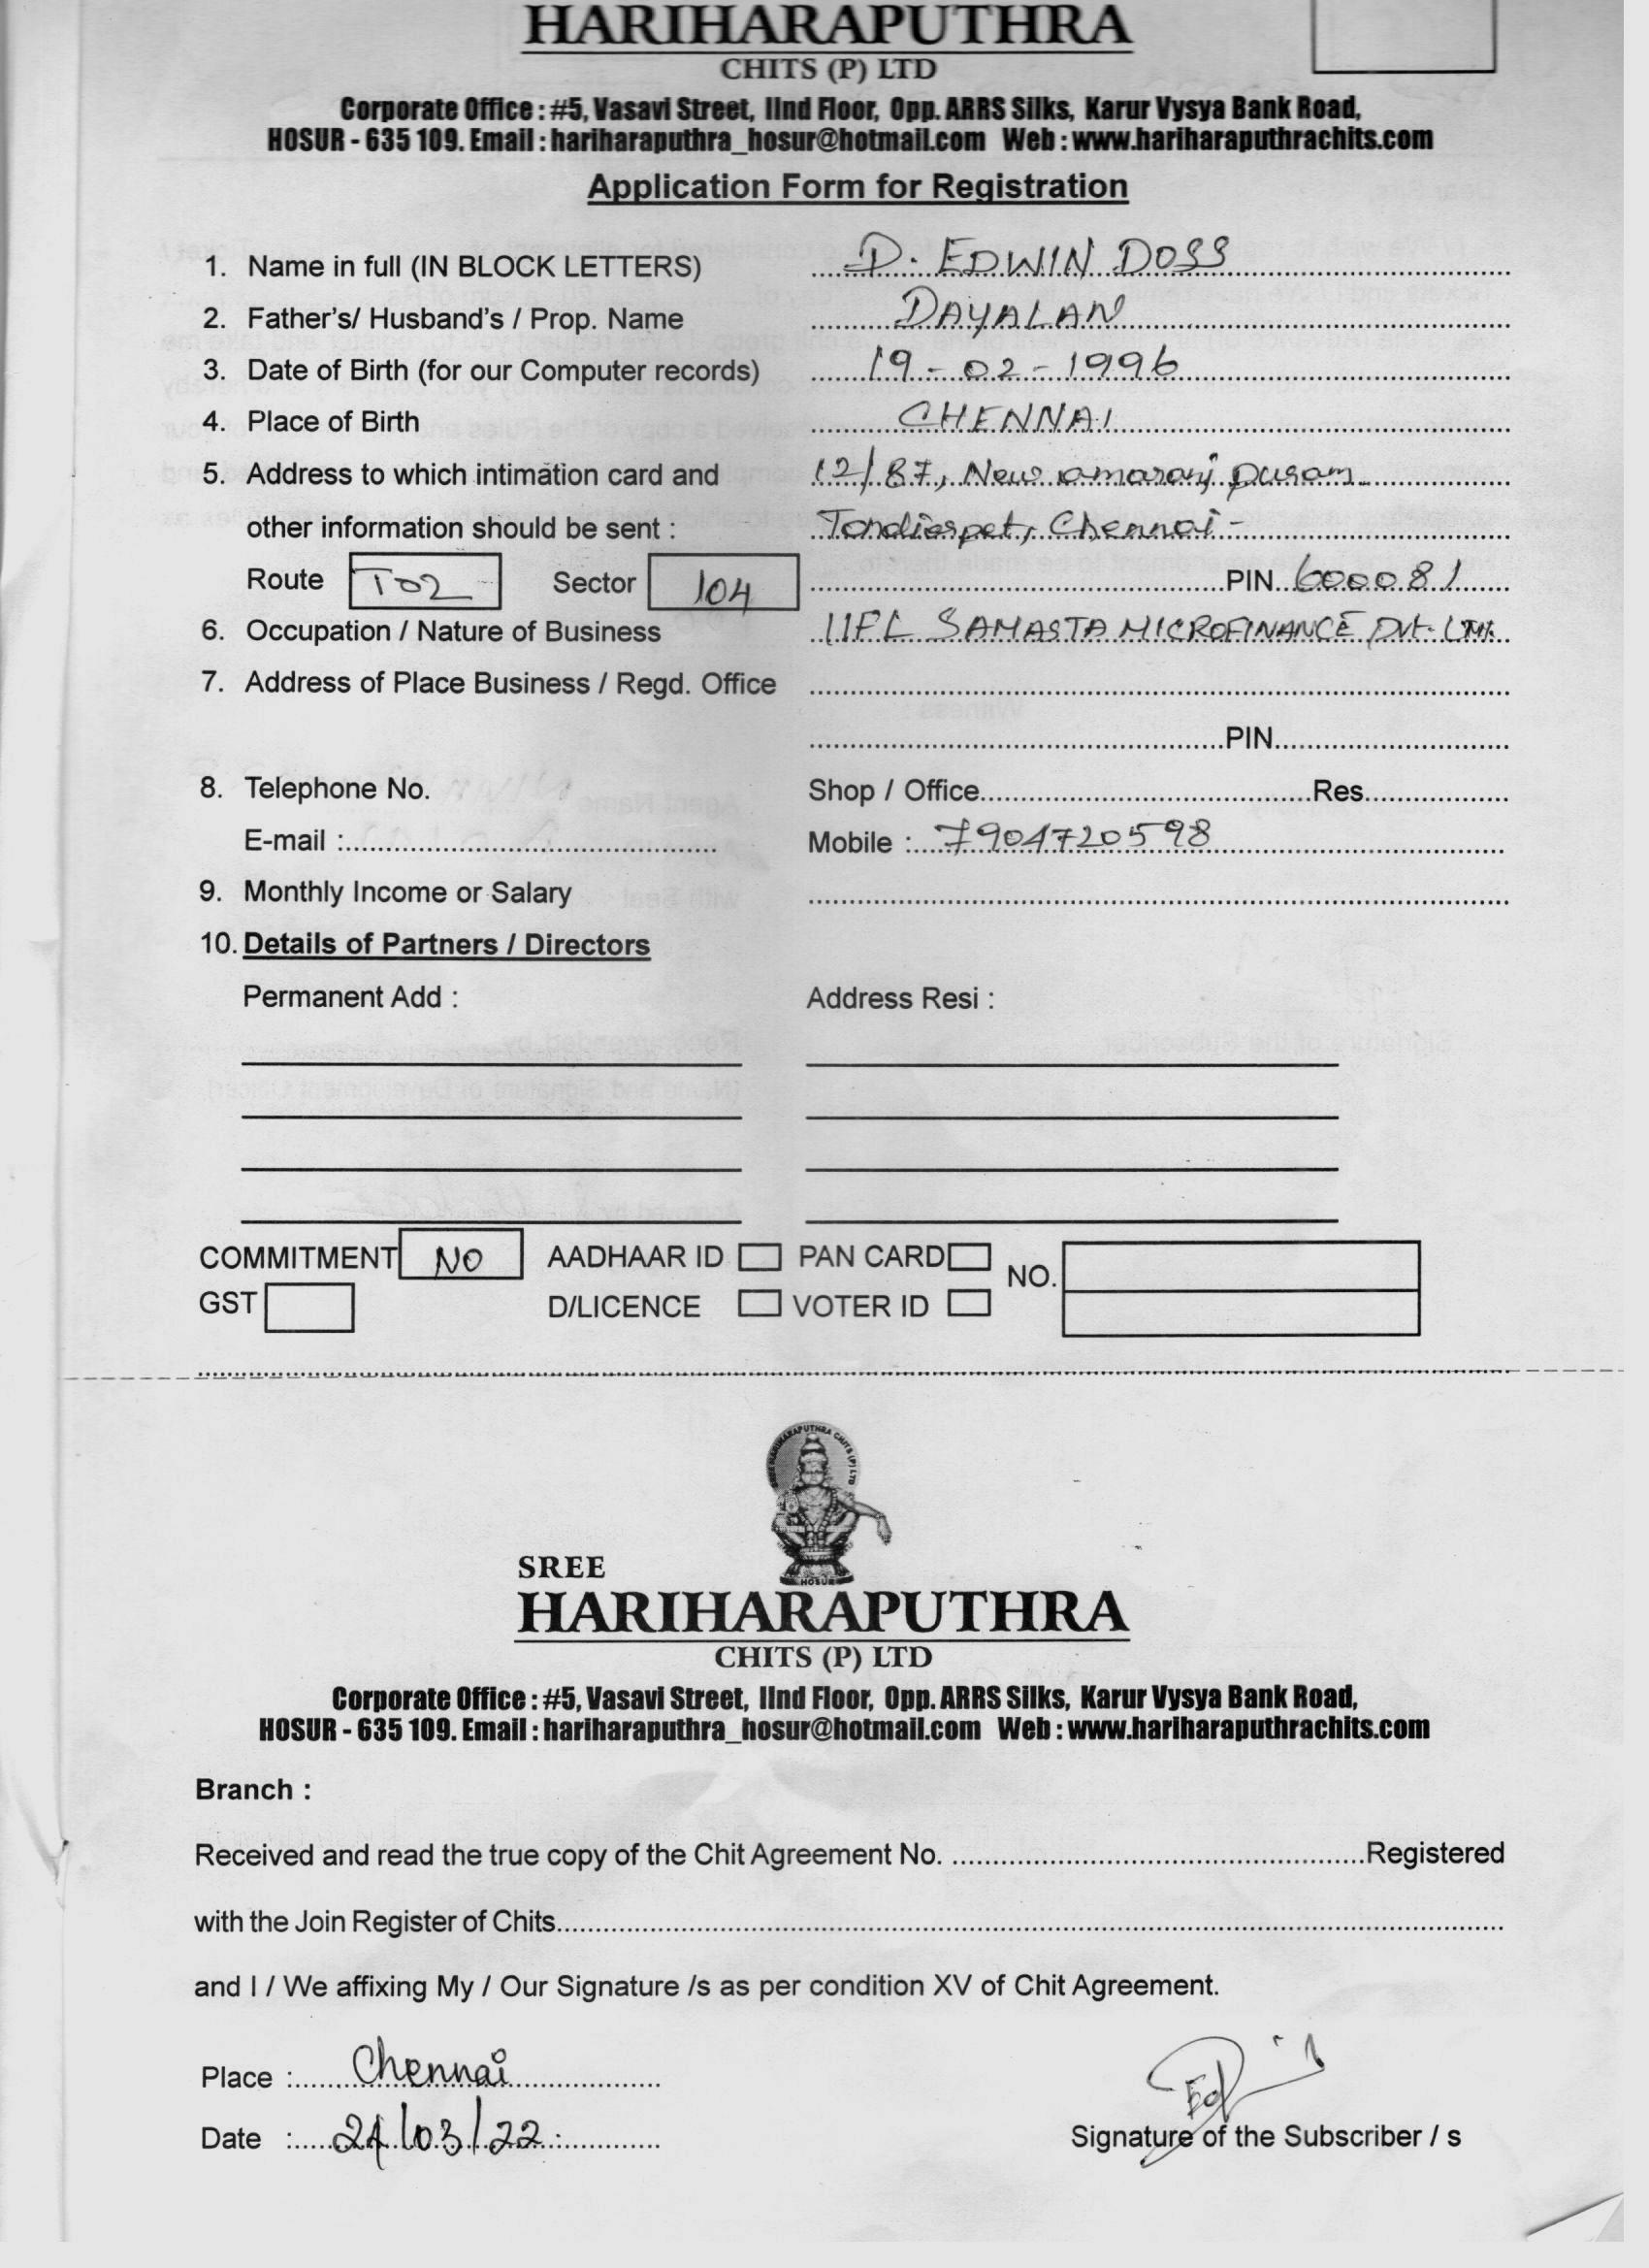 HARIHARAPUTHRA
CHITS (P) LTD
Corporate Office : #5, Vasavi Street, IInd Floor, Opp. ARRS Silks, Karur Vysya Bank Road,
HOSUR - 635 109. Email : hariharaputhra_hosur@hotmail.com Web : www.hariharaputhrachits.com
Application Form for Registration
1. Name in full (IN BLOCK LETTERS) D. EDWIN DOSS
2. Father's/ Husband's / Prop. Name DAYALAN
3. Date of Birth (for our Computer records) 19-02-1996
4. Place of Birth CHENNAI
5. Address to which intimation card and 12/87, New amaranj puram
other information should be sent : Tondiarpet, Chennai -
Route T02 Sector 104 PIN 600081
6. Occupation / Nature of Business IIFL SAMASTA MICROFINANCE Pvt. Ltd.
7. Address of Place Business / Regd. Office
PIN
8. Telephone No. Shop / Office Res
E-mail : Mobile : 7904720598
9. Monthly Income or Salary
10. Details of Partners / Directors
Permanent Add : Address Resi :
COMMITMENT NO AADHAAR ID PAN CARD NO.
GST D/LICENCE VOTER ID
SREE HARIHARAPUTHRA CHITS (P) LTD
HOSUR
SREE
HARIHARAPUTHRA
CHITS (P) LTD
Corporate Office : #5, Vasavi Street, IInd Floor, Opp. ARRS Silks, Karur Vysya Bank Road,
HOSUR - 635 109. Email : hariharaputhra_hosur@hotmail.com Web : www.hariharaputhrachits.com
Branch :
Received and read the true copy of the Chit Agreement No. Registered
with the Join Register of Chits
and I / We affixing My / Our Signature /s as per condition XV of Chit Agreement.
Place : Chennai
Date : 24/03/22
Signature of the Subscriber / s